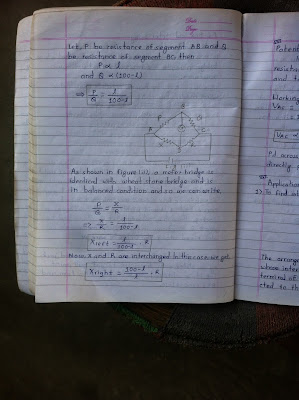 Date:
Page:
Let, P be resistance of segment AB and Q
be resistance of segment BC then
P ∝ l
and Q ∝ (100-l)
⇒ P/Q = l/100-l
B
P
Q
A
C
G
As shown in figure (ii), a meter bridge is
identical with wheat stone bridge and is
in balanced condition and so we can write.
P/Q = X/R
⇒ X/R = l/100-l
Xleft = l/100-l . R
Now, X and R are interchanged in the case we get,
Xright = 100-l/l . R
Poten
resista
and t
Working
VAC ∝
Pd across
directly
Application
1) To find
The arrange
whose inter
terminal of
cted so th